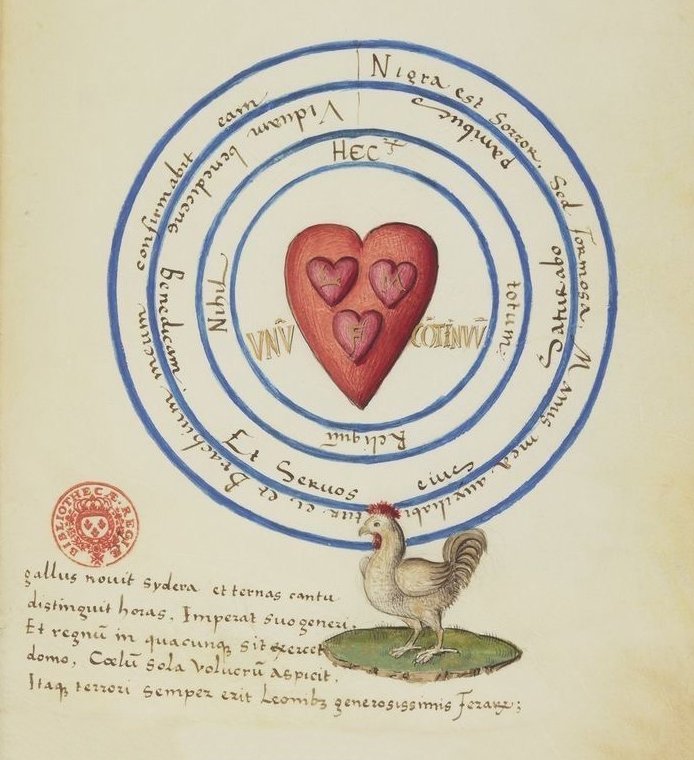 Nigra est Sorror, Sed formosa, Manus mea auxiliabitur ei, et Brachium meum confirmabit eam
Viduam benedicens Benedicam Et Servos eius Saturabo panibus
HEC totum Reliquũ Nihil
A M
F
VNŨ CÕTINVŨ
BIBLIOTHECÆ REGIÆ
gallus novit sydera et ternas cantu
distinguit horas, Imperat suo generi,
Et regnũ in quacunq; sit exercet
domo, Cœlũ Sola Volucrũ aspicit,
Itaq; terrori semper erit Leonib; generosissimis Ferarũ;